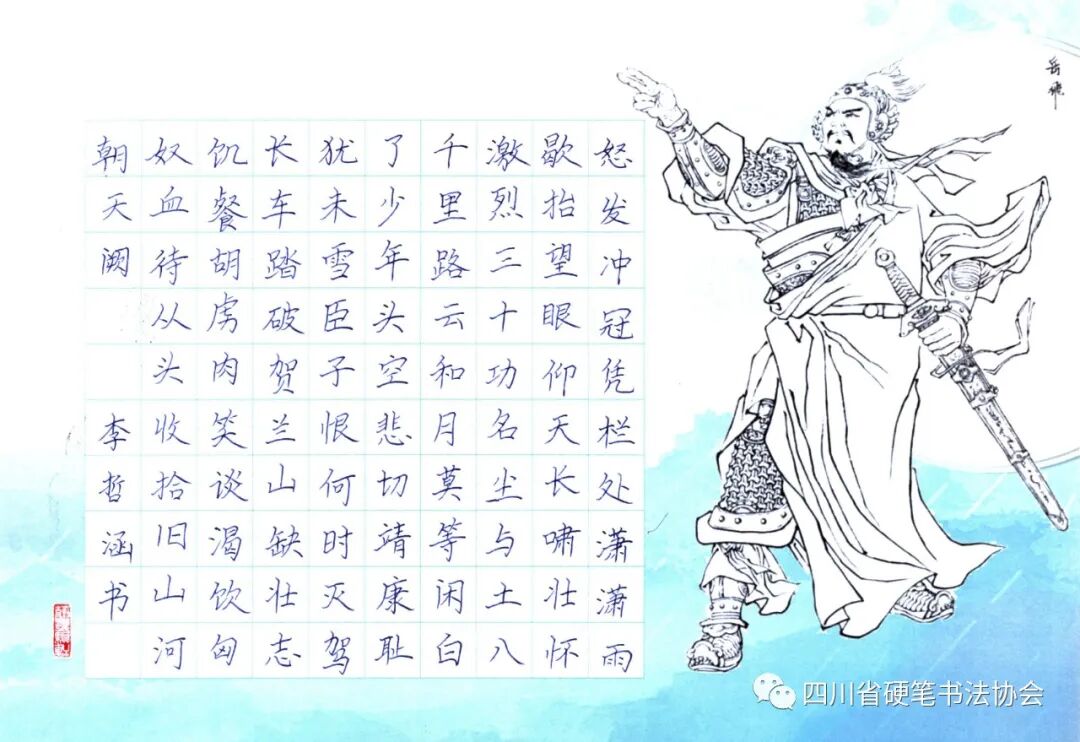 岳飛
怒发冲冠凭栏处潇潇雨
歇抬望眼仰天长啸壮怀
激烈三十功名尘与土八
千里路云和月莫等闲白
了少年头空悲切靖康耻
犹未雪臣子恨何时灭驾
长车踏破贺兰山缺壮志
饥餐胡虏肉笑谈渴饮匈
奴血待从头收拾旧山河
朝天阙 李哲涵书
四川省硬笔书法协会